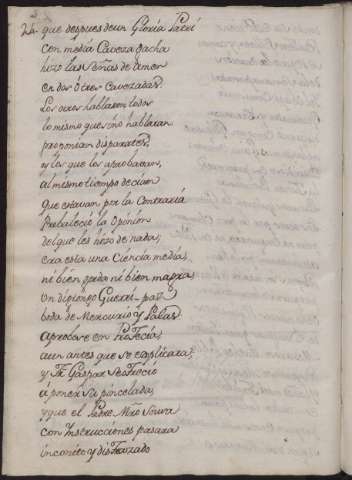 24. que despues de un Gloria Patri
con media Caveza gacha
hizo las señas de amen
en dos ò tres cavezadas.
Los otros hablaron todos
lo mismo que si no hablaran
proponian disparates,
y los que los aprobaban,
al mismo tiempo decian
que estavan por la Contraria
Prebaleciò la Opinion
del que les hizo de nada;
era esta una Ciencia media,
ni bien gorda ni bien magra
Un diptongo Guerri-paz
boda de Mercurio y Palas
Aprobose en Profecia,
aun antes que se explicara;
y Fr. Gaspar se ofreciò
à poner su pincelada,
y que el Padre Mro Sousa
con Instrucciones pasara
incognito y disfrazado